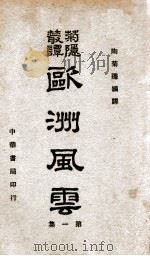 陶菊隱編譯
菊隱叢譚
歐洲風雲
第一集
中華書局印行